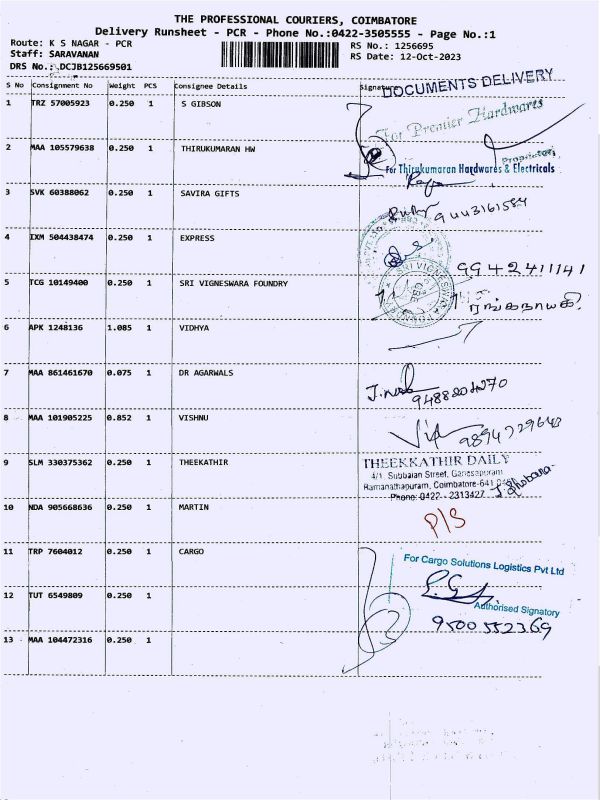 THE PROFESSIONAL COURIERS, COIMBATORE
Delivery Runsheet - PCR - Phone No.:0422-3505555 - Page No.:1
Route: K S NAGAR - PCR
RS No.: 1256695
Staff: SARAVANAN
RS Date: 12-Oct-2023
DRS No.: DCJB125669501
S No Consignment No Weight PCS Consignee Details Signature
DOCUMENTS DELIVERY
1 TRZ 57005923 0.250 1 S GIBSON
For Premier Hardwares
Proprietor
2 MAA 105579638 0.250 1 THIRUKUMARAN HW
For Thirukumaran Hardwares & Electricals
3 SVK 60388062 0.250 1 SAVIRA GIFTS
9443161584
4 IXM 504438474 0.250 1 EXPRESS
9942411141
SRI VIGNESWARA
5 TCG 10149400 0.250 1 SRI VIGNESWARA FOUNDRY
ரங்கநாயகி
6 APK 1248136 1.085 1 VIDHYA
7 MAA 861461670 0.075 1 DR AGARWALS
9488204270
8 MAA 101905225 0.852 1 VISHNU
9894729643
9 SLM 330375362 0.250 1 THEEKATHIR
THEEKKATHIR DAILY
4/1, Subbaian Street, Ganesapuram
Ramanathapuram, Coimbatore-641
Phone: 0422 - 2313427
10 NDA 905668636 0.250 1 MARTIN
P/S
11 TRP 7604012 0.250 1 CARGO
For Cargo Solutions Logistics Pvt Ltd
12 TUT 6549809 0.250 1
Authorised Signatory
9500552369
13 MAA 104472316 0.250 1